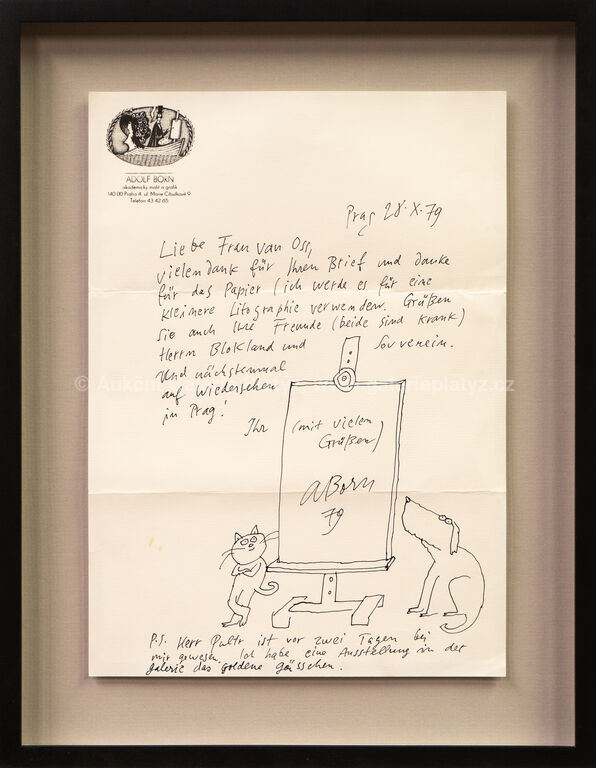 ADOLF BORN
akademický malíř a grafik
140 00 Praha 4, ul. Marie Cibulkové 9
Telefon 43 42 65
Prag 28.X.79
Liebe Frau van Oss,
vielen dank für Ihren Brief und danke
für das Papier (ich werde es für eine
kleinere Litographie verwenden. Grüßen
Sie auch Ihre Freunde (beide sind krank)
Herrn Blokland und Souverein.
Und nächstenmal
auf Wiedersehen
in Prag!
Ihr (mit vielen
Grüßen)
ABorn
79
P.S. Herr Pultr ist vor zwei Tagen bei
mir gewesen. Ich habe eine Ausstellung in der
galerie das goldene gässchen.